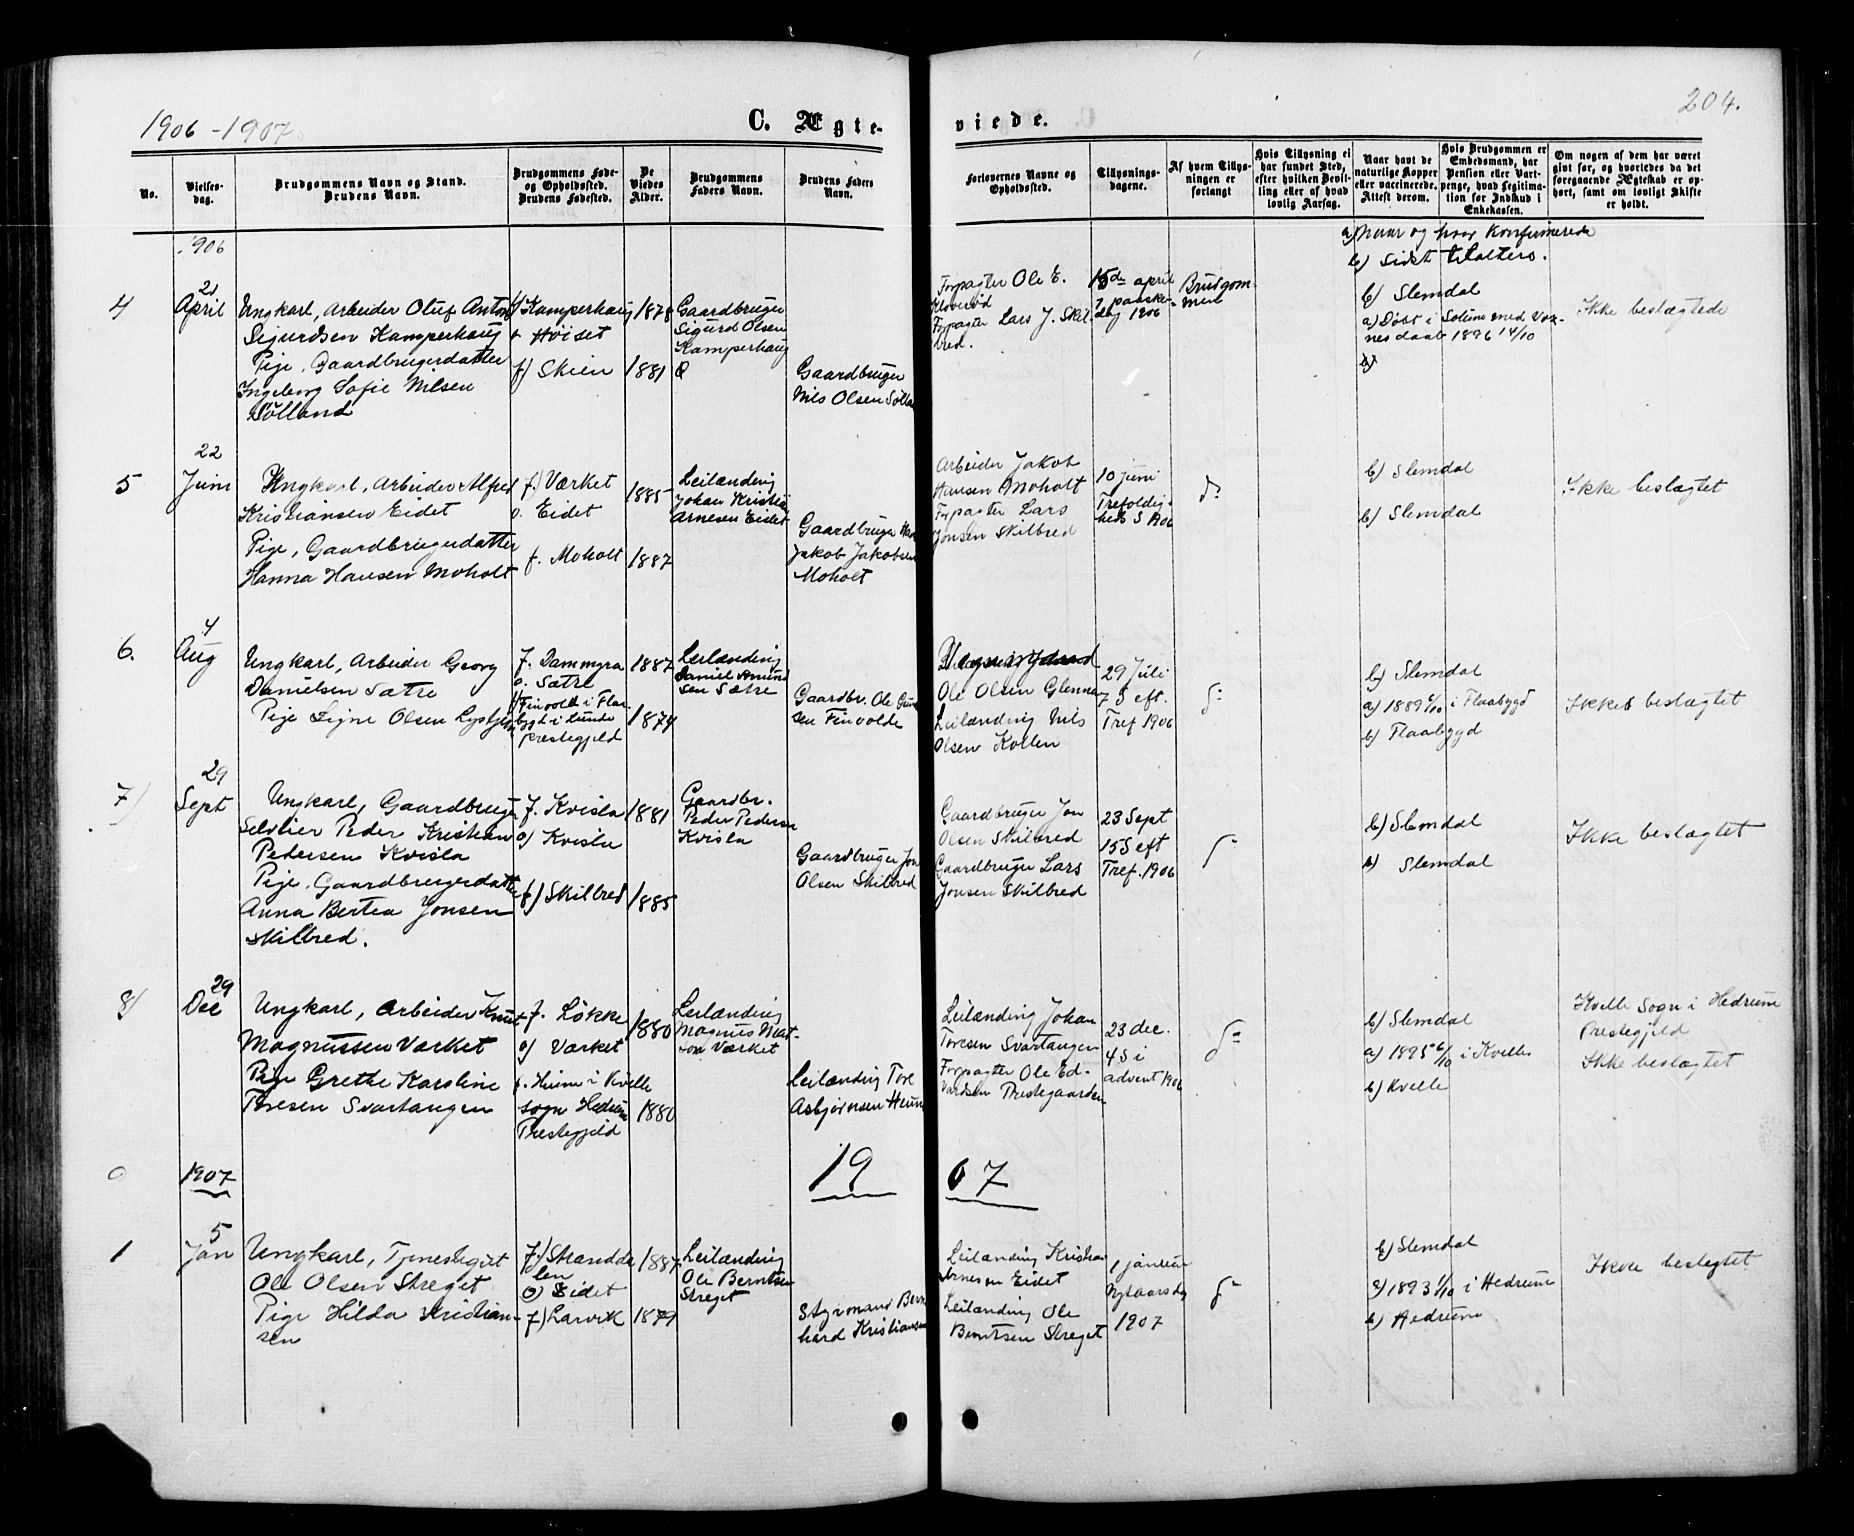 1906-1907
C. Ægte-
viede.
204.
No.
Vielses-
dag.
Brudgommens Navn og Stand.
Brudens Navn.
Brudgommens Føde-
og Opholdssted.
Brudens Fødested.
De
Viedes
Alder.
Brudgommens
Faders Navn.
Brudens Faders
Navn.
Forlovernes Navne og
Opholdssted.
Tillysnings-
dagene.
Af hvem Tillys-
ningen er
forlangt
Hvis Tillysning ei
har fundet Sted,
efter hvilken Bevil-
ling eller af hvad
lovlig Aarsag.
Naar havt de
naturlige Kopper
eller vaccinerede.
Attest derom.
Hvis Brudgommen er
Embedsmand, har
Pension eller Vart-
penge, hvad Legitima-
tion for Indskud i
Enkekassen.
Om nogen af dem har været
givt før, og hvorledes da det
foregaaende Ægteskab er op-
hørt, samt om lovligt Skifte
er holdt.
1906
a) Naar og hvor Konfirmerede
b) Sidst til alters.
4
21
April
Ungkarl, Arbeider Oluf Anton
Sigurdsen Kamperhaug
Pige, Gaardbrugerdatter
Ingeborg Sofie Nilsen
Sølland
f) Kamperhaug
o Høiset
f) Skien
1878
1881
Gaardbruger
Sigurd Olsen
Kamperhaug
Gaardbruger
Nils Olsen
Forpagter Ole E.
Forpagter Lars J. Skil-
bred.
15de april
2 paaske-
dag 1906
Brudgom-
men
b) Slemdal
a) Døbt i Solum med Vox-
nes daab 1896 14/10
b)
Ikke beslægtede
5
22
Juni
Ungkarl, Arbeider Alfred
Kristiansen Eidet
Pige, Gaardbrugerdatter
Hanna Hansen Moholt
f.) Værket
o. Eidet
f. Moholt
1885
1887
Leilænding
Johan Kristia
Arnesen Eidet
Gaardbruger
Jakob Jakobsen
Moholt
Arbeider Jakob
Hansen Moholt
Forpagter Lars
Jonsen Skilbred
10 Juni
Trefoldig-
heds S 1906
d:
b) Slemdal
b) Slemdal
Ikke beslægtet
6.
4
Aug
Ungkarl, Arbeider Georg
Danielsen Sætre
Pige Signe Olsen
f. Dammyra
o. Sætre
f) Finvolde i Flaa-
bygd i Lunde
prestegjeld
1887
1874
Leilænding
Daniel Amund
sen Sætre
Gaardbr. Ole
sen Finvolde
Ole Olsen Glenna
Leilænding Nils
Olsen Kollen
29 Juli
7 S eft.
Tref 1906
d:
b) Slemdal
a) 1889 6/10 i Flaabygd
b) Flaabygd
Ikkes beslægtet
7)
29
Sept
Ungkarl, Gaardbruger
Selveier Peder Kristian
Pedersen Kvisla
Pige, Gaardbrugerdatter
Anna Bertea Jonsen
Skilbred.
f. Kvisla
o) Kvisla
f) Skilbred
1881
1885
Gaardbr.
Peder Pedersen
Kvisla
Gaardbruger Jon
Olsen Skilbred
Gaardbruger Jon
Olsen Skilbred
Gaardbruger Lars
Jonsen Skilbred
23 Sept
15 S eft
Tref. 1906
b) Slemdal
b) Slemdal
Ikke beslægtet
8)
29
Dec
Ungkarl, Arbeider Knut
Magnussen Værket
Pige Grethe Karoline
Toresen Svartangen
f. Løkke
o) Værket
f. Heum i Kvelle
sogn Hedrum
Prestegjeld
1880
1880
Leilænding
Magnus Mat-
son Værket
Leilænding Tore
Asbjørnsen Heum
Leilænding Johan
Toresen Svartangen
Forpagter Ole Ed-
vardsen Prestegaarden
23 dec.
4 S i
advent 1906
d:
b) Slemdal
a) 1895 6/10 i Kvelle
b) Kvelle
Kvelle Sogn i Hedrum
Prestegjeld
Ikke beslægtet
0
1907
19
07
1
5
Jan
Ungkarl, Tjenestegut
Ole Olsen Streget
Pige Hilda Kristian-
sen
f.) Strandda
len
o) Eidet
f) Larvik
1887
1879
Leilænding
Ole Berntsen
Streget
Styrmand Bern
hard Kristiansen
Leilænding Kristian
Arnesen Eidet
Leilænding Ole
Berntsen Streget
1 januar
Nytaarsdg
1907
b) Slemdal
a) 1893 1/10 i Hedrum
b) Hedrum
Ikke beslegtet